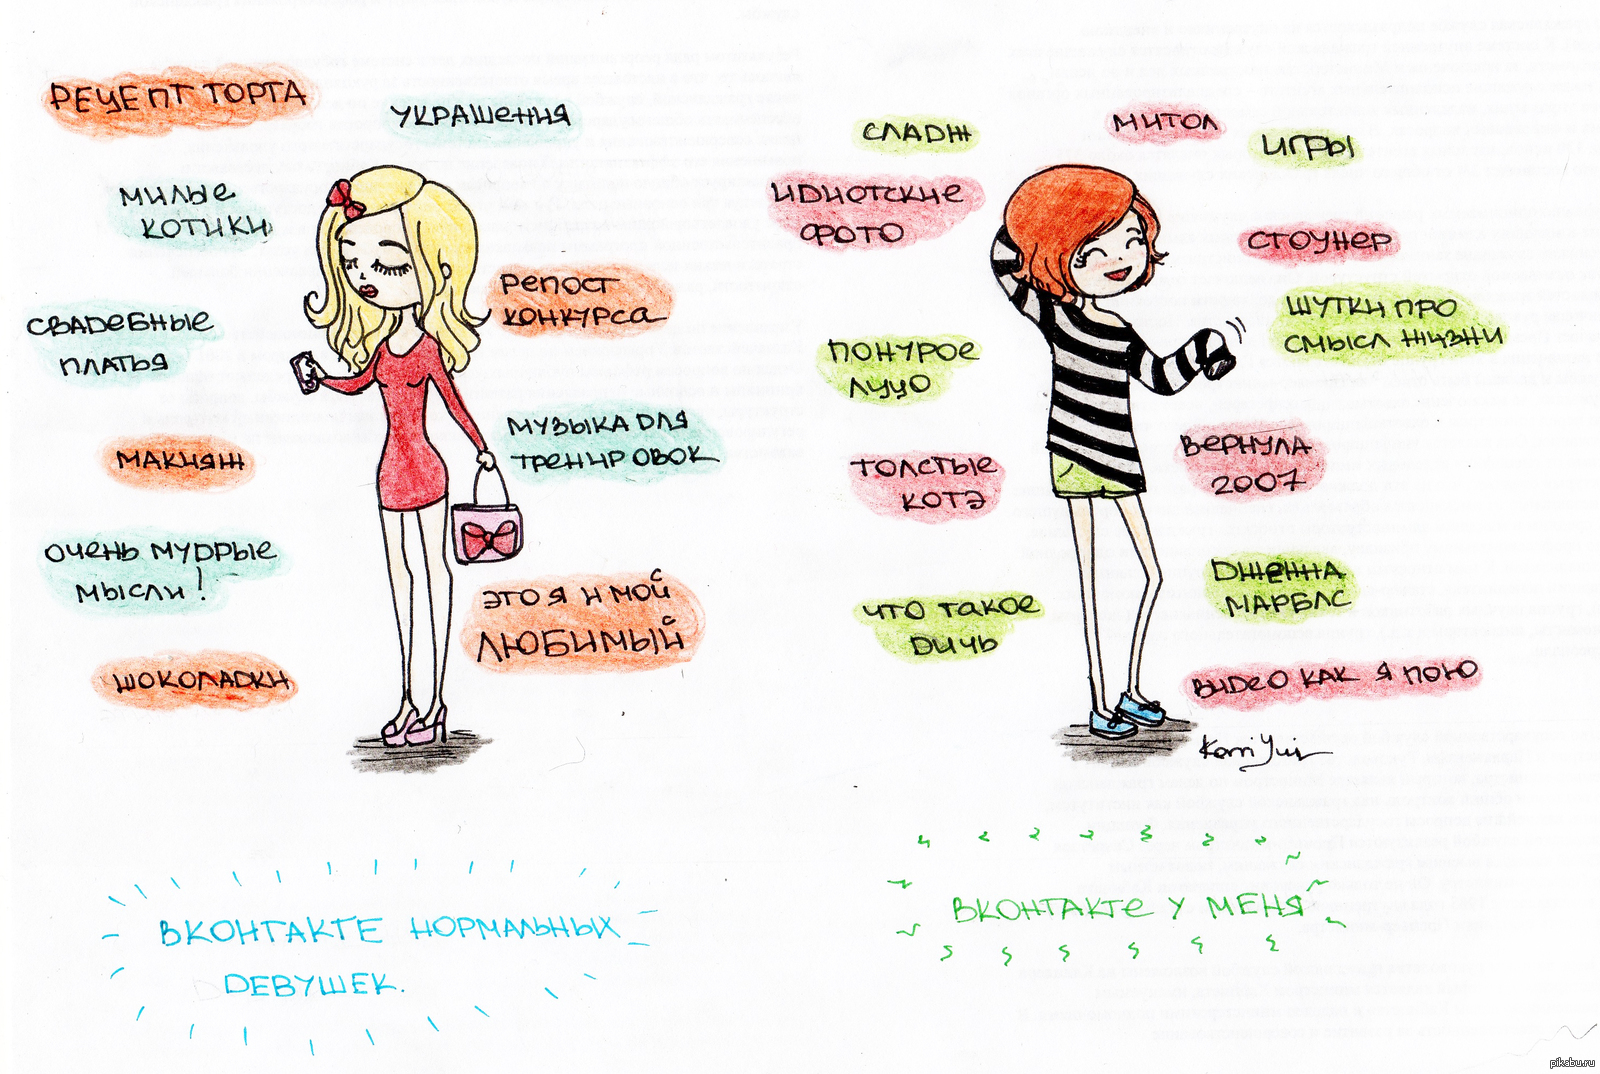 РЕЦЕПТ ТОРТА
УКРАШЕНИЯ
МИЛЫЕ
КОТИКИ
СВАДЕБНЫЕ
ПЛАТЬЯ
РЕПОСТ
КОНКУРСА
МАКИЯЖ
МУЗЫКА ДЛЯ
ТРЕНИРОВОК
ОЧЕНЬ МУДРЫЕ
МЫСЛИ!
ЭТО Я И МОЙ
ЛЮБИМЫЙ
ШОКОЛАДКИ
ВКОНТАКТЕ НОРМАЛЬНЫХ
ДЕВУШЕК.
СЛАДЖ
МИТОЛ
ИГРЫ
ИДИОТСКИЕ
ФОТО
СТОУНЕР
ШУТКИ ПРО
СМЫСЛ ЖИЗНИ
ПОНУРОЕ
ЛИЦО
ВЕРНУЛА
2007
ТОЛСТЫЕ
КОТЭ
ДЖЕННА
МАРБЛС
ЧТО ТАКОЕ
ДИЧЬ
ВИДЕО КАК Я ПОЮ
ВКОНТАКТЕ У МЕНЯ
pikabu.ru